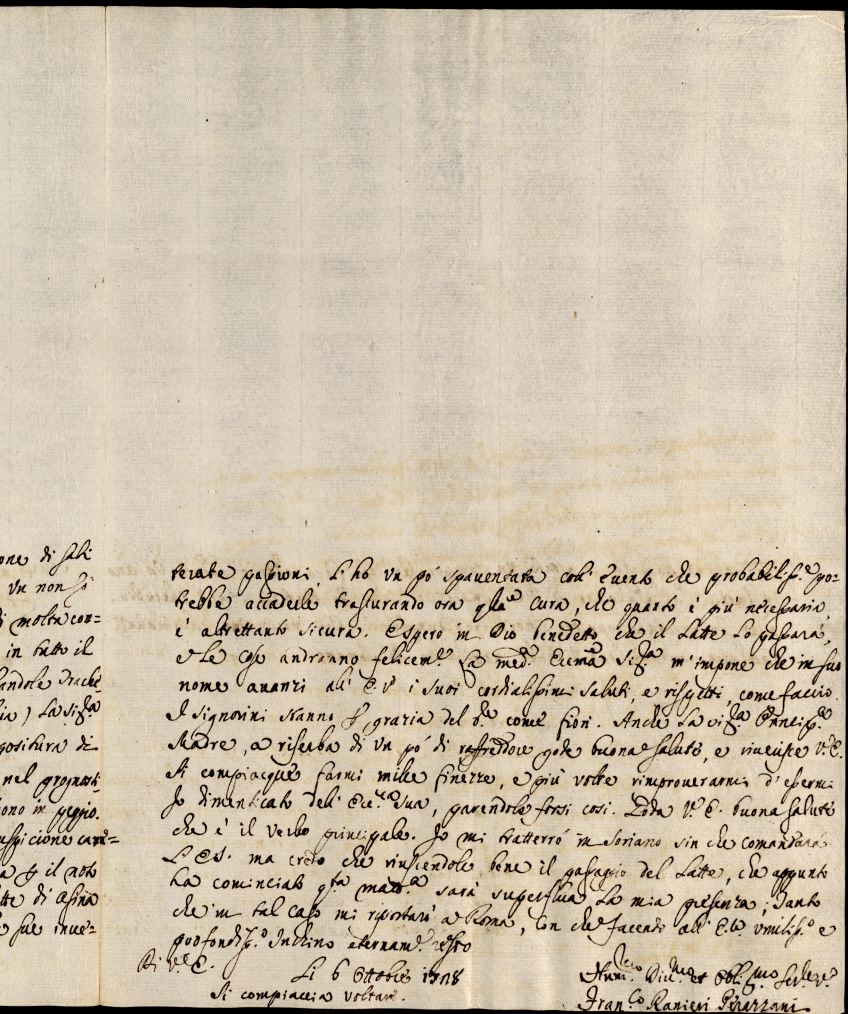 one di sali
vn non sò
di molta con-
in tutto il
ia) La Sig.ra
positura di
nel prognosti-
ono in peggio.
uspicione
a p il noto
tte di asina
e sue inue-
terate passioni. L'hò vn pó spauentata coll' euento che probabiliss.e po-
trebbe accaderle trascurando ora q.sta cura, che quanto è più necessaria,
è altrettanto sicura. E spero in Dio benedetto che il Latte lo passarà,
e le cose andranno felicem.e La med.a Ecc.ma Sig.ra m'impone che in suo
nome auanzi all' E.V. i suoi cordialissimi saluti, e rispetti, come faccio.
I Signorini stanno p grazia del Sig.e come fiori. Anche La Sig.ra Princip.a
Madre, a riserba di vn pó di raffreddore gode buona salute, e riuerisce V.E.
Si compiacque farmi mille finezze, e più volte rimprouerarmi d'essermi
Io dimenticato dell' Ecc.za Sua, parendole forsi cosi. Goda V.E. buona salute
che è il verbo principale. Io mi tratterró in Soriano sin che comandarà
L'E.S. ma credo che riuscendole bene il passaggio del Latte, che appunto
ha cominciato q.sta matt.a sarà superflua La mia presenza; Tanto
che in tal caso mi riportarò a Roma, con che facendo all' E.V. vmiliss.o e
profondiss.o Inchino eternam.e resto
Di V.E.
Li 6 Ottobre 1708
Si compiaccia voltare.
Vmil.mo Diu.mo et Obl.mo Ser.e V.o
Fran.co Ranieri